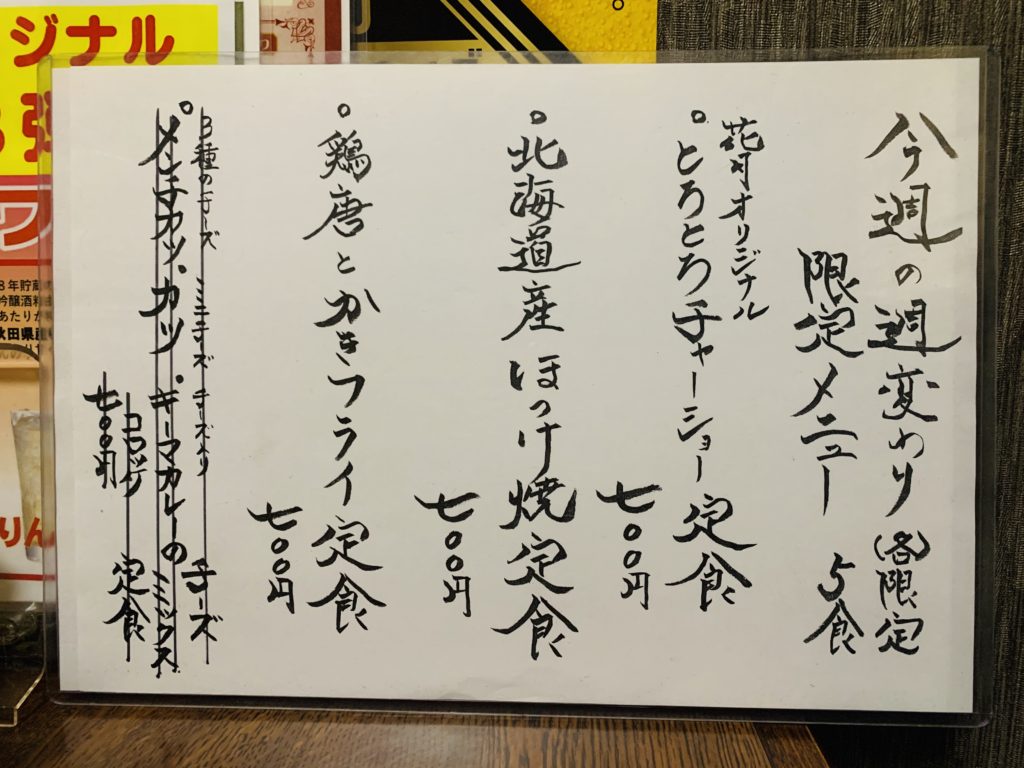 今週の週変わり(各限定
限定メニュー 5食
花月オリジナル
。とろとろ子チャーショー定食
七〇〇円
。北海道産ほっけ焼定食
七〇〇円
。鶏唐とかきフライ定食
七〇〇円
3種のチーズ
チーズ
。メンチカツ、カツ。キーマカレーのミックス
コロッケ 定食
七〇〇円
ジナル
ワ
8年貯蔵
吟醸酒粕
あたりが
秋田県産
りん